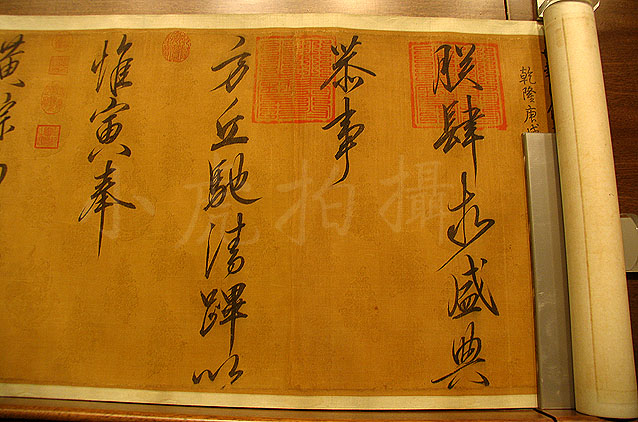 乾隆庚
朕肆求盛典
恭事
方丘馳清蹕以
惟寅奉
黃琮
小虎拍攝